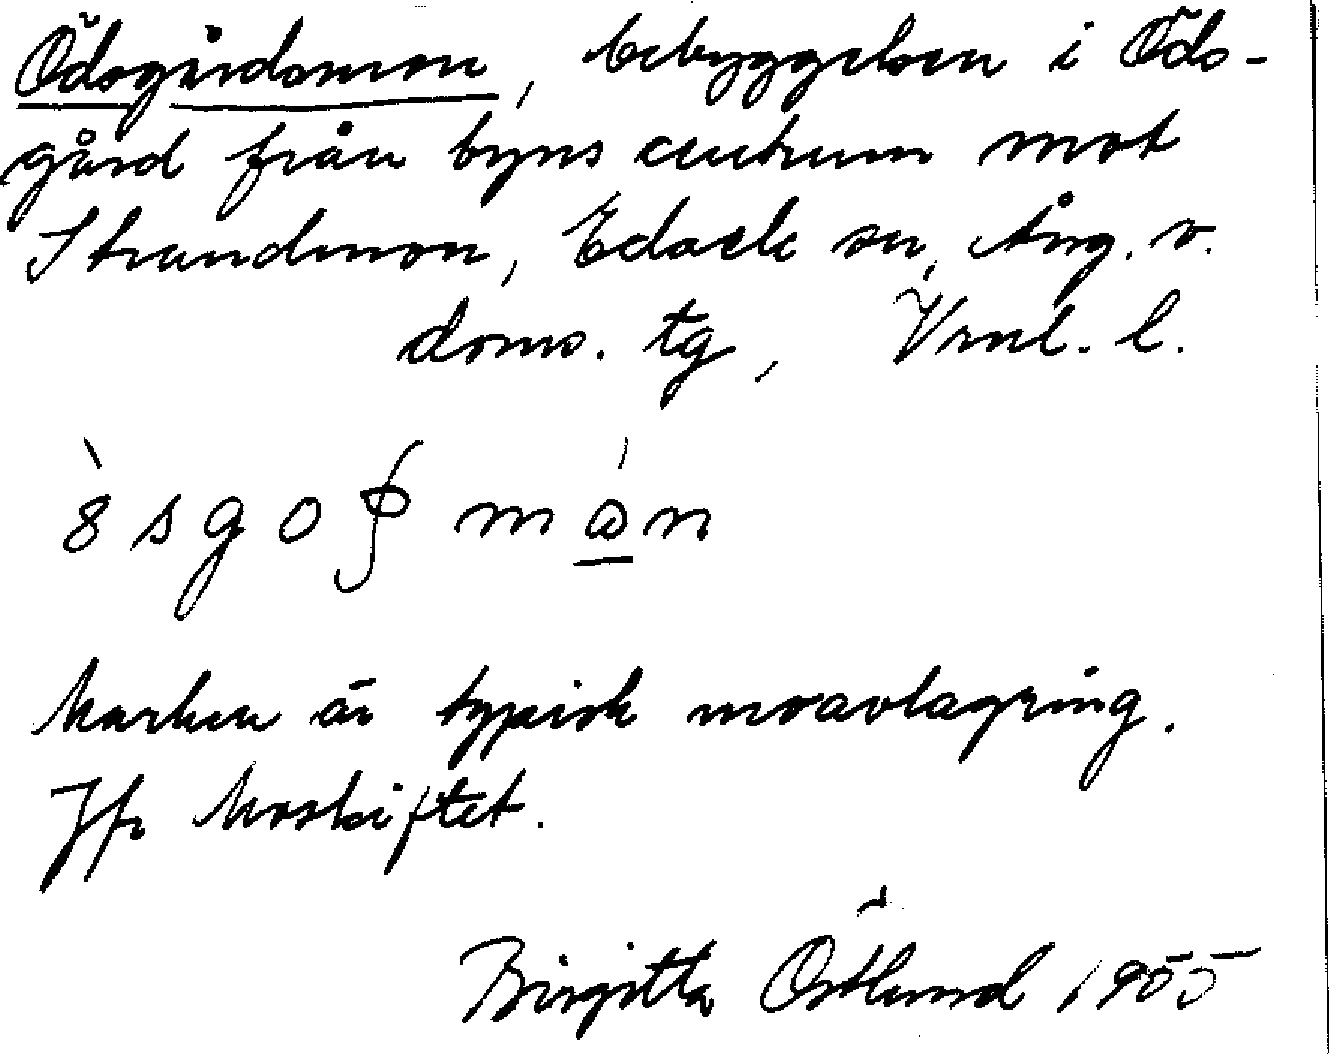 Ödsgårdsmon, bebyggelsen i Öds-
gård från byns centrum mot
Strandmon, Edsele sn, Ång. v.
doms. tg, Vrnl. l.
mån
Marken är typisk moavlagring.
Jfr Moskiftet.
Birgitta Östlund 1955